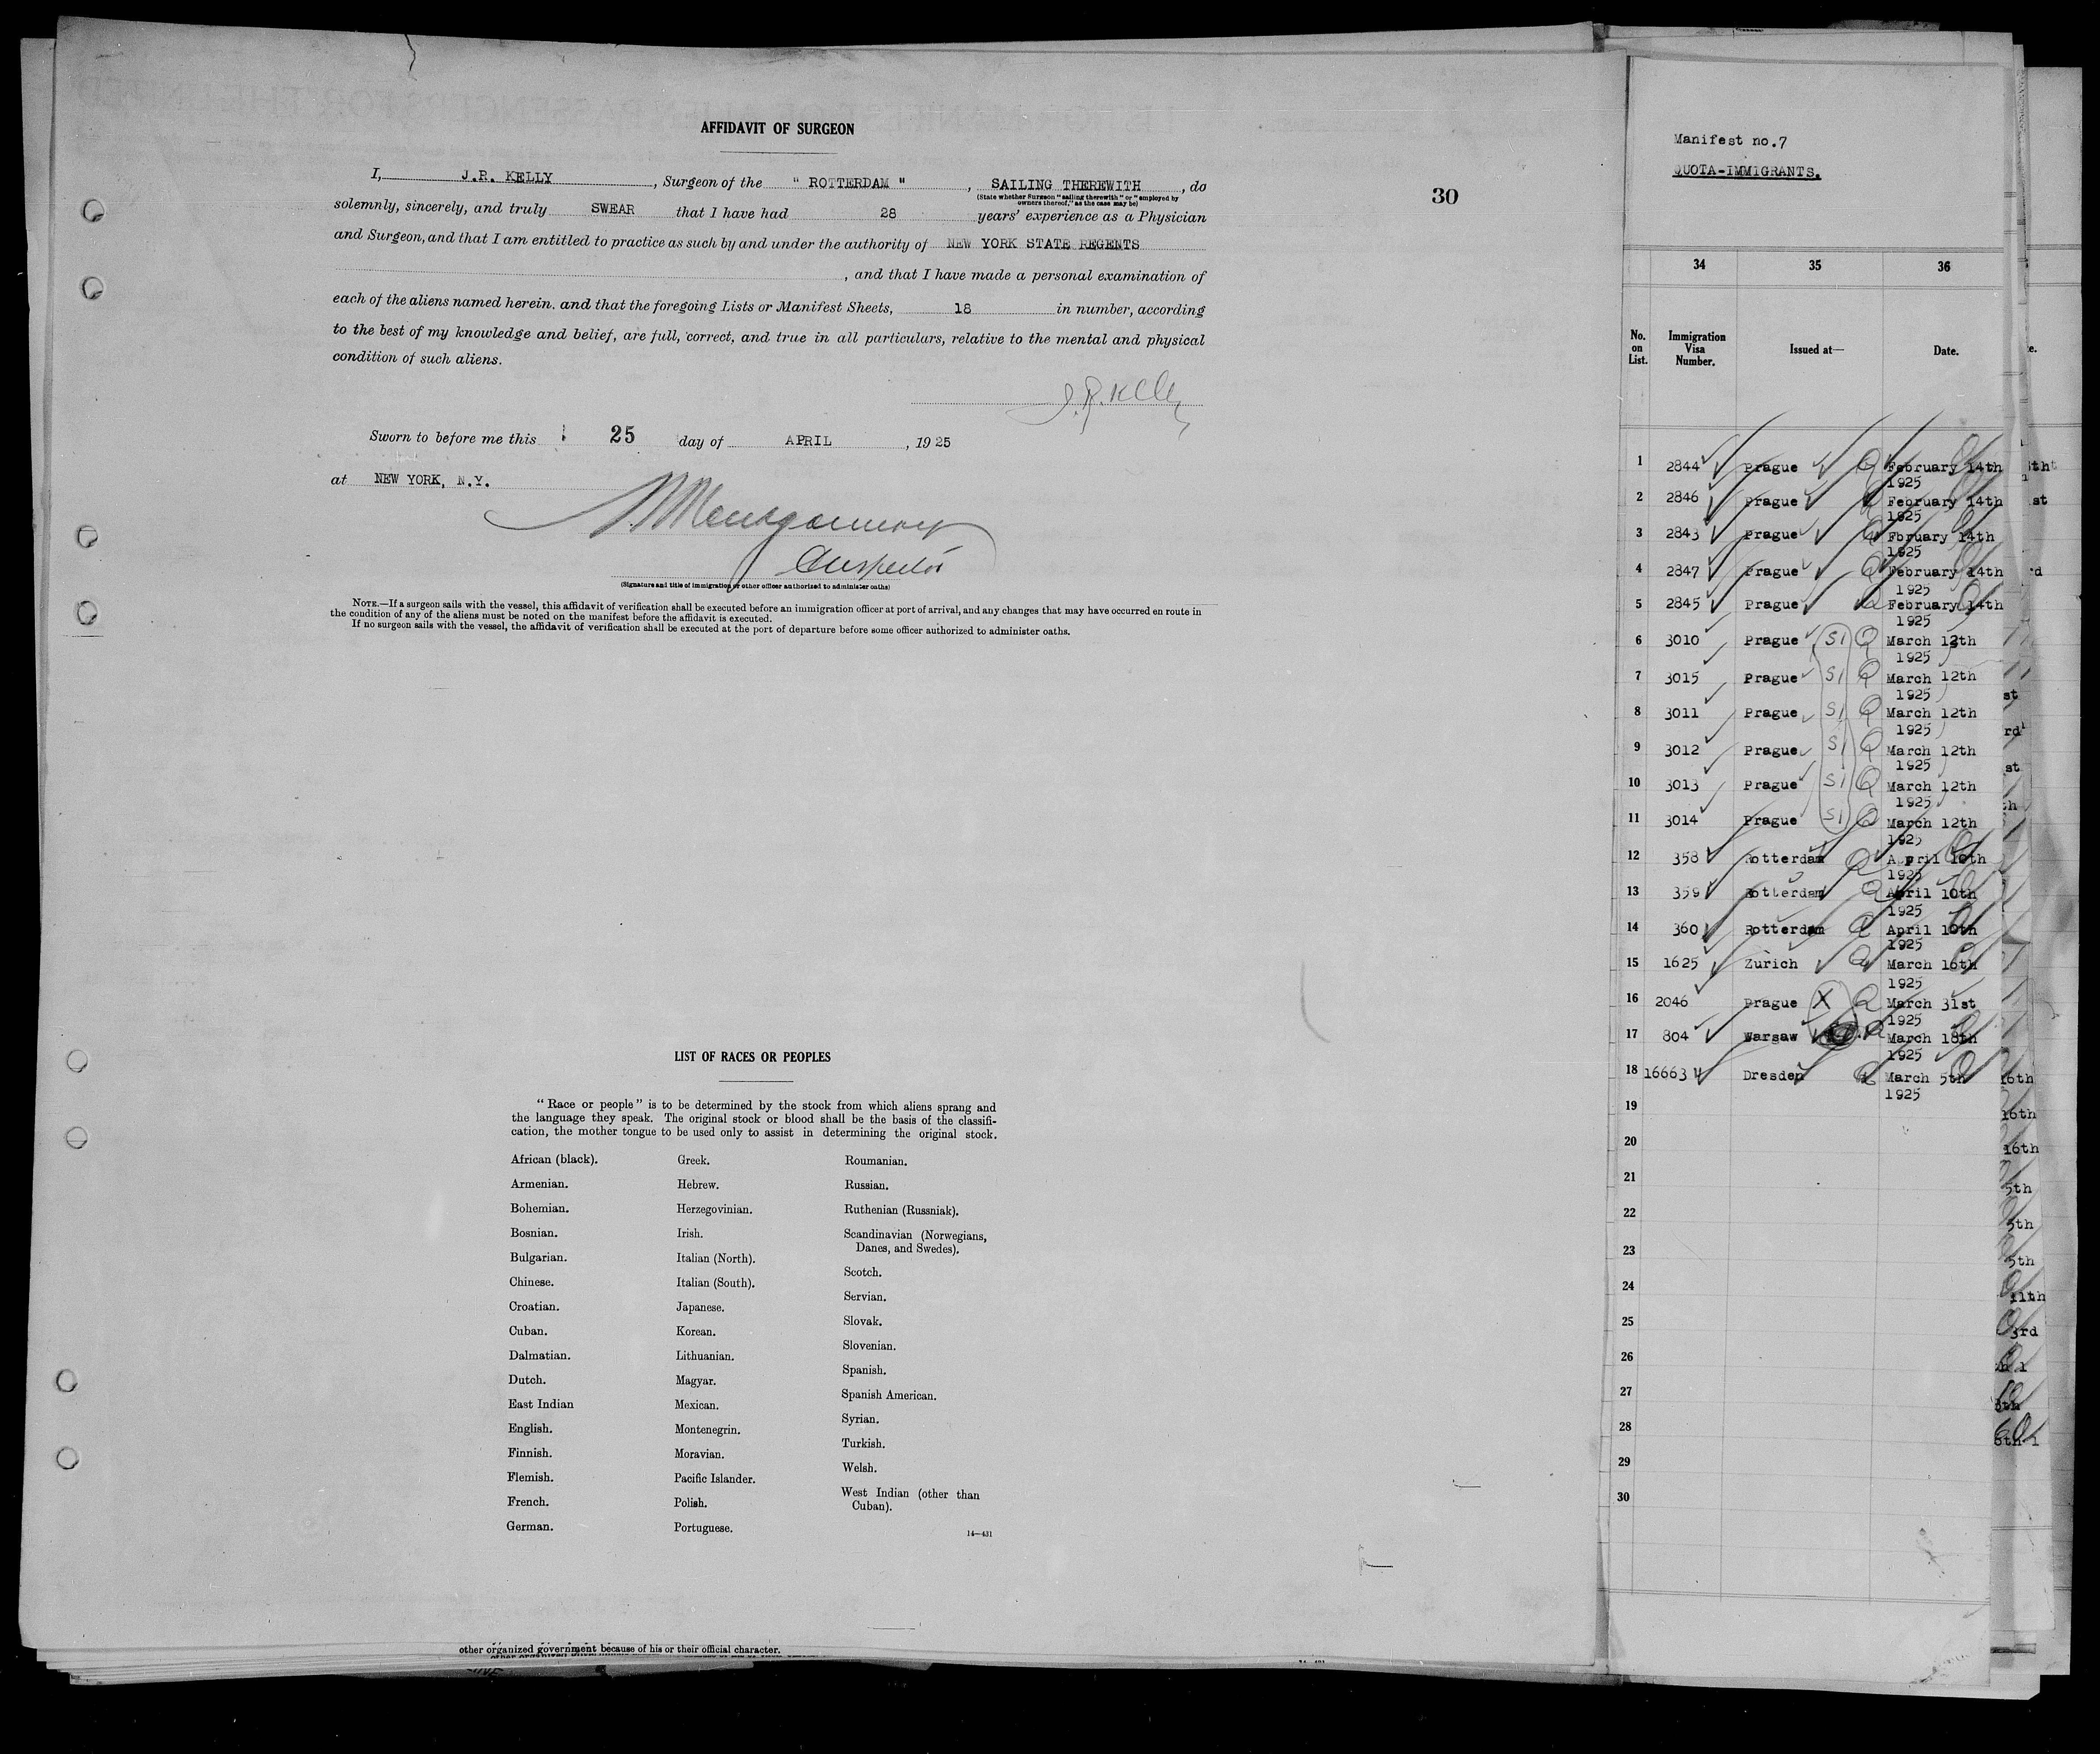 AFFIDAVIT OF SURGEON
I, J.R. KELLY, Surgeon of the " ROTTERDAM ", SAILING THEREWITH, do
(State whether Surgeon "sailing therewith" or "employed by
owners thereof," as the case may be)
solemnly, sincerely, and truly SWEAR that I have had 28 years' experience as a Physician
and Surgeon, and that I am entitled to practice as such by and under the authority of NEW YORK STATE REGENTS
, and that I have made a personal examination of
each of the aliens named herein. and that the foregoing Lists or Manifest Sheets, 18 in number, according
to the best of my knowledge and belief, are full, correct, and true in all particulars, relative to the mental and physical
condition of such aliens.
J.R. Kelly
Sworn to before me this 25 day of APRIL, 1925
at NEW YORK, N.Y.
Montgomery
Inspector
(Signature and title of immigration or other officer authorized to administer oaths)
NOTE.—If a surgeon sails with the vessel, this affidavit of verification shall be executed before an immigration officer at port of arrival, and any changes that may have occurred en route in
the condition of any of the aliens must be noted on the manifest before the affidavit is executed.
If no surgeon sails with the vessel, the affidavit of verification shall be executed at the port of departure before some officer authorized to administer oaths.
30
LIST OF RACES OR PEOPLES
"Race or people" is to be determined by the stock from which aliens sprang and
the language they speak. The original stock or blood shall be the basis of the classifi-
cation, the mother tongue to be used only to assist in determining the original stock.
African (black).
Armenian.
Bohemian.
Bosnian.
Bulgarian.
Chinese.
Croatian.
Cuban.
Dalmatian.
Dutch.
East Indian
English.
Finnish.
Flemish.
French.
German.
Greek.
Hebrew.
Herzegovinian.
Irish.
Italian (North).
Italian (South).
Japanese.
Korean.
Lithuanian.
Magyar.
Mexican.
Montenegrin.
Moravian.
Pacific Islander.
Polish.
Portuguese.
Roumanian.
Russian.
Ruthenian (Russniak).
Scandinavian (Norwegians,
Danes, and Swedes).
Scotch.
Servian.
Slovak.
Slovenian.
Spanish.
Spanish American.
Syrian.
Turkish.
Welsh.
West Indian (other than
Cuban).
14—431
other organized government because of his or their official character.
Manifest no.7
QUOTA-IMMIGRANTS.
34 35 36
No. on List. Immigration Visa Number. Issued at— Date.
1 2844 Prague Q February 14th
1925
2 2846 Prague Q February 14th
1925
3 2843 Prague Q Fbruary 14th
1925
4 2847 Prague Q February 14th
1925
5 2845 Prague Q February 14th
1925
6 3010 Prague SI Q March 12th
1925
7 3015 Prague SI Q March 12th
1925
8 3011 Prague SI Q March 12th
1925
9 3012 Prague SI Q March 12th
1925
10 3013 Prague SI Q March 12th
1925
11 3014 Prague SI Q March 12th
1925
12 358 Rotterdam Q April 10th
1925
13 359 Rotterdam Q April 10th
1925
14 360 Rotterdam Q April 10th
1925
15 1625 Zurich Q March 16th
1925
16 2046 Prague X Q March 31st
1925
17 804 Warsaw Q March 18th
1925
18 16663 Dresden Q March 5th
1925
19
20
21
22
23
24
25
26
27
28
29
30